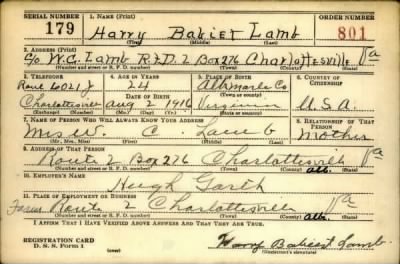 SERIAL NUMBER 1. NAME (Print) ORDER NUMBER
179 Harry Lamb 801
(First) (Middle) (Last)
2. ADDRESS (Print)
C/o W.C. Lamb R.F.D. 2 Box 276 Charlottesville Va
(Number and street or R. F. D. number) (Town) (County) (State)
3. TELEPHONE 4. AGE IN YEARS 5. PLACE OF BIRTH 6. COUNTRY OF CITIZENSHIP
24 Albemarle Co
DATE OF BIRTH
Charlottesville Aug 2 1916 Virginia U.S.A.
(Exchange) (Number) (Mo.) (Day) (Yr.) (State or country)
7. NAME OF PERSON WHO WILL ALWAYS KNOW YOUR ADDRESS 8. RELATIONSHIP OF THAT PERSON
Mrs W. C Lamb Mother
(Mr., Mrs., Miss) (First) (Middle) (Last)
9. ADDRESS OF THAT PERSON
Route 2 Box 276 Charlottesville Alb. Va
(Number and street or R. F. D. number) (Town) (County) (State)
10. EMPLOYER'S NAME
Hugh Garth
11. PLACE OF EMPLOYMENT OR BUSINESS
Farm Route 2 Charlottesville Alb. Va
(Number and street or R. F. D. number) (Town) (County) (State)
I AFFIRM THAT I HAVE VERIFIED ABOVE ANSWERS AND THAT THEY ARE TRUE.
REGISTRATION CARD
D. S. S. Form 1 Harry Lamb
(over) (Registrant's signature)